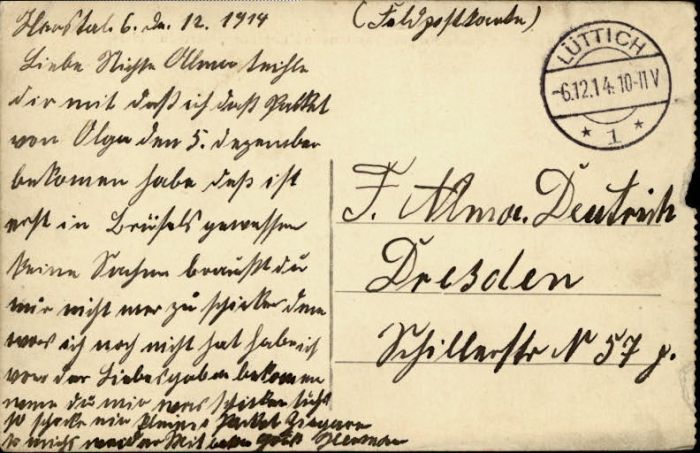 Herstal. 6. De. 12. 1914
(Feldpostkarte)
LÜTTICH
-6.12.14.10-11V
* 1 *
Liebe Nichte Alma teihle
dir mit daß ich daß Packet
von Olga den 5. Dezember
bekomen habe daß ist
erst in Brüsels gewessen
keine Sachen brauhst du
mir nicht mer zu schicken denn
was ich noch nicht hat habe ich
von der Liebesgaben bekomen
wenn du mir was schicken
so schicke ein kleines Packet Ziegaren
Herman
F. Alma. Deutrich
Dresden
Schillerstr N 57 p.